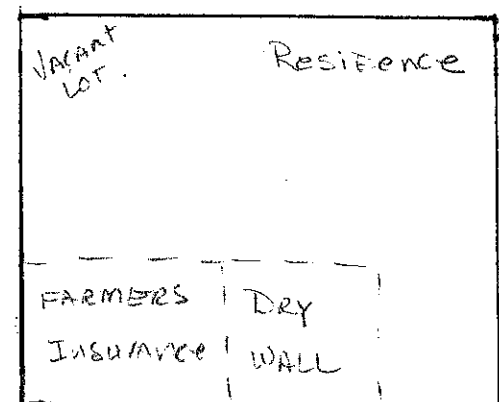 VACANT
LOT.
Residence
FARMERS
Insurance
DRY
WALL